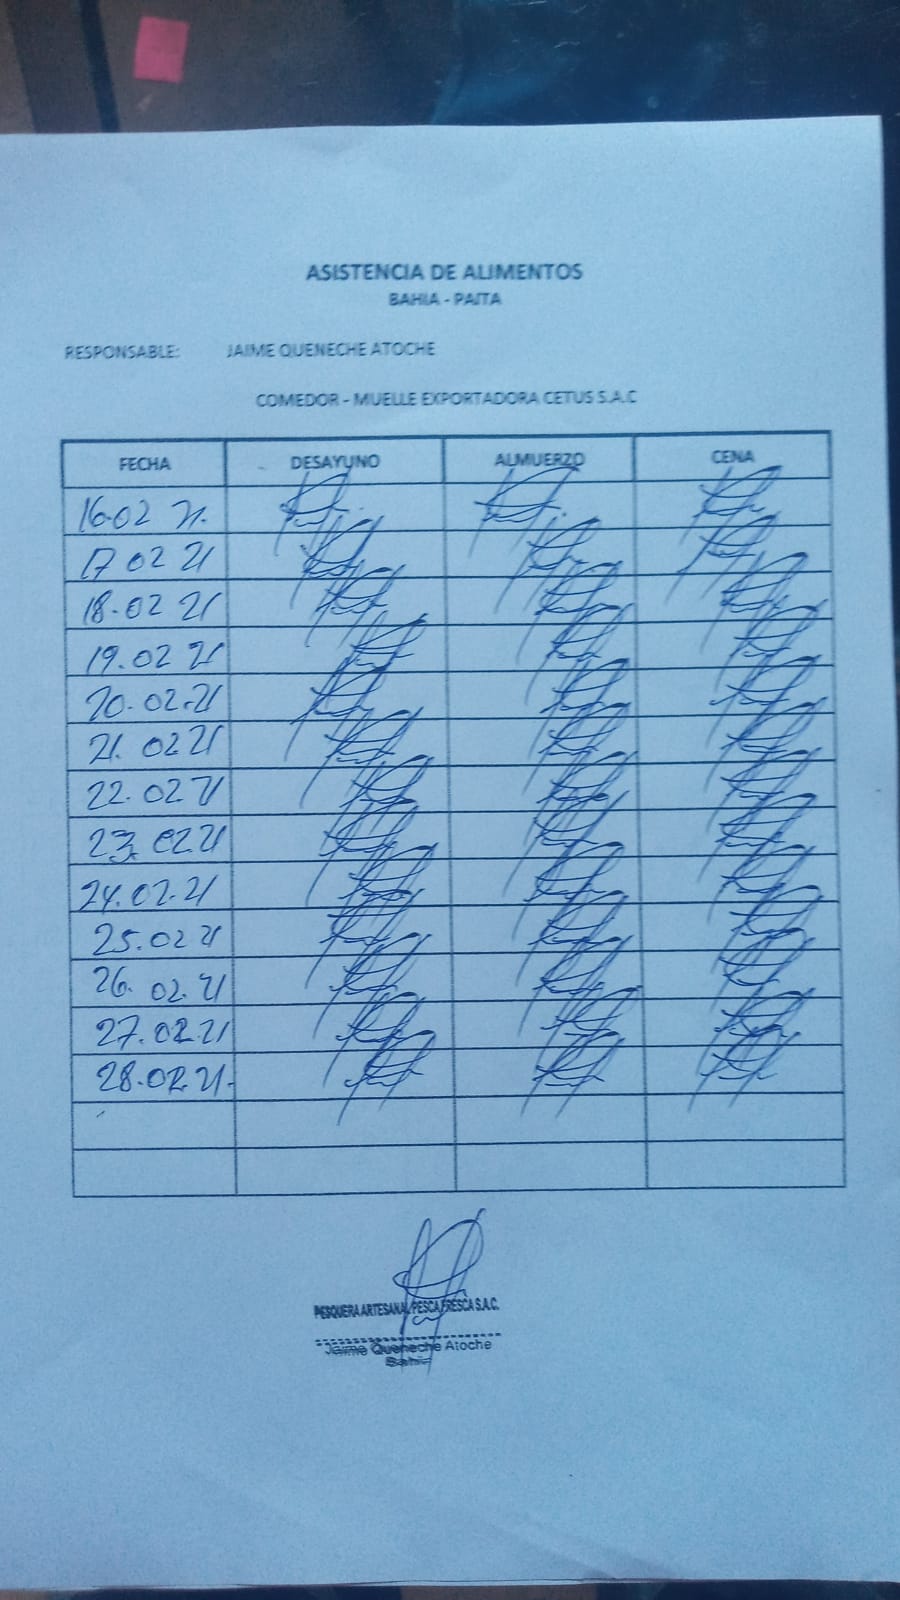 ASISTENCIA DE ALIMENTOS
BAHIA - PAITA
RESPONSABLE: JAIME QUENECHE ATOCHE
COMEDOR - MUELLE EXPORTADORA CETUS S.A.C
FECHA DESAYUNO ALMUERZO CENA
16.02 21.
17 02 21
18.02 21
19.02 21
20.02.21
21. 02 21
22.02 21
23. 02.21
24.02.21
25.02 21
26. 02. 21
27.02.21
28.02.21.
PESQUERA ARTESANAL PESCA FRESCA S.A.C.
Jaime Queneche Atoche
Bahia